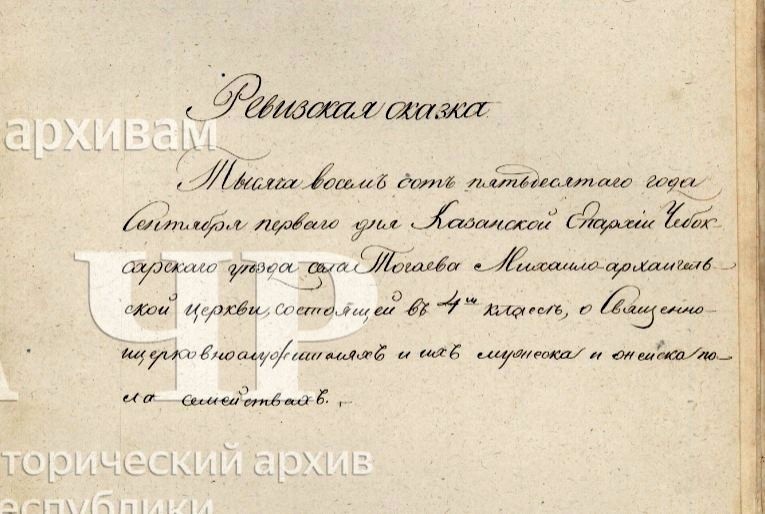 Ревизская сказка
архивам
Тысяча восемь сотъ пятьдесятаго года
Сентября перваго дня Казанской Епархіи Чебок-
сарскаго уѣзда села Тогаева Михаило-архангель-
ской церкви, состоящей въ 4мъ классѣ, о Священно-
ицерковнослужителяхъ и ихъ мужеска и женска по-
ла семействахъ.
ЧР
торический архив
еспублики